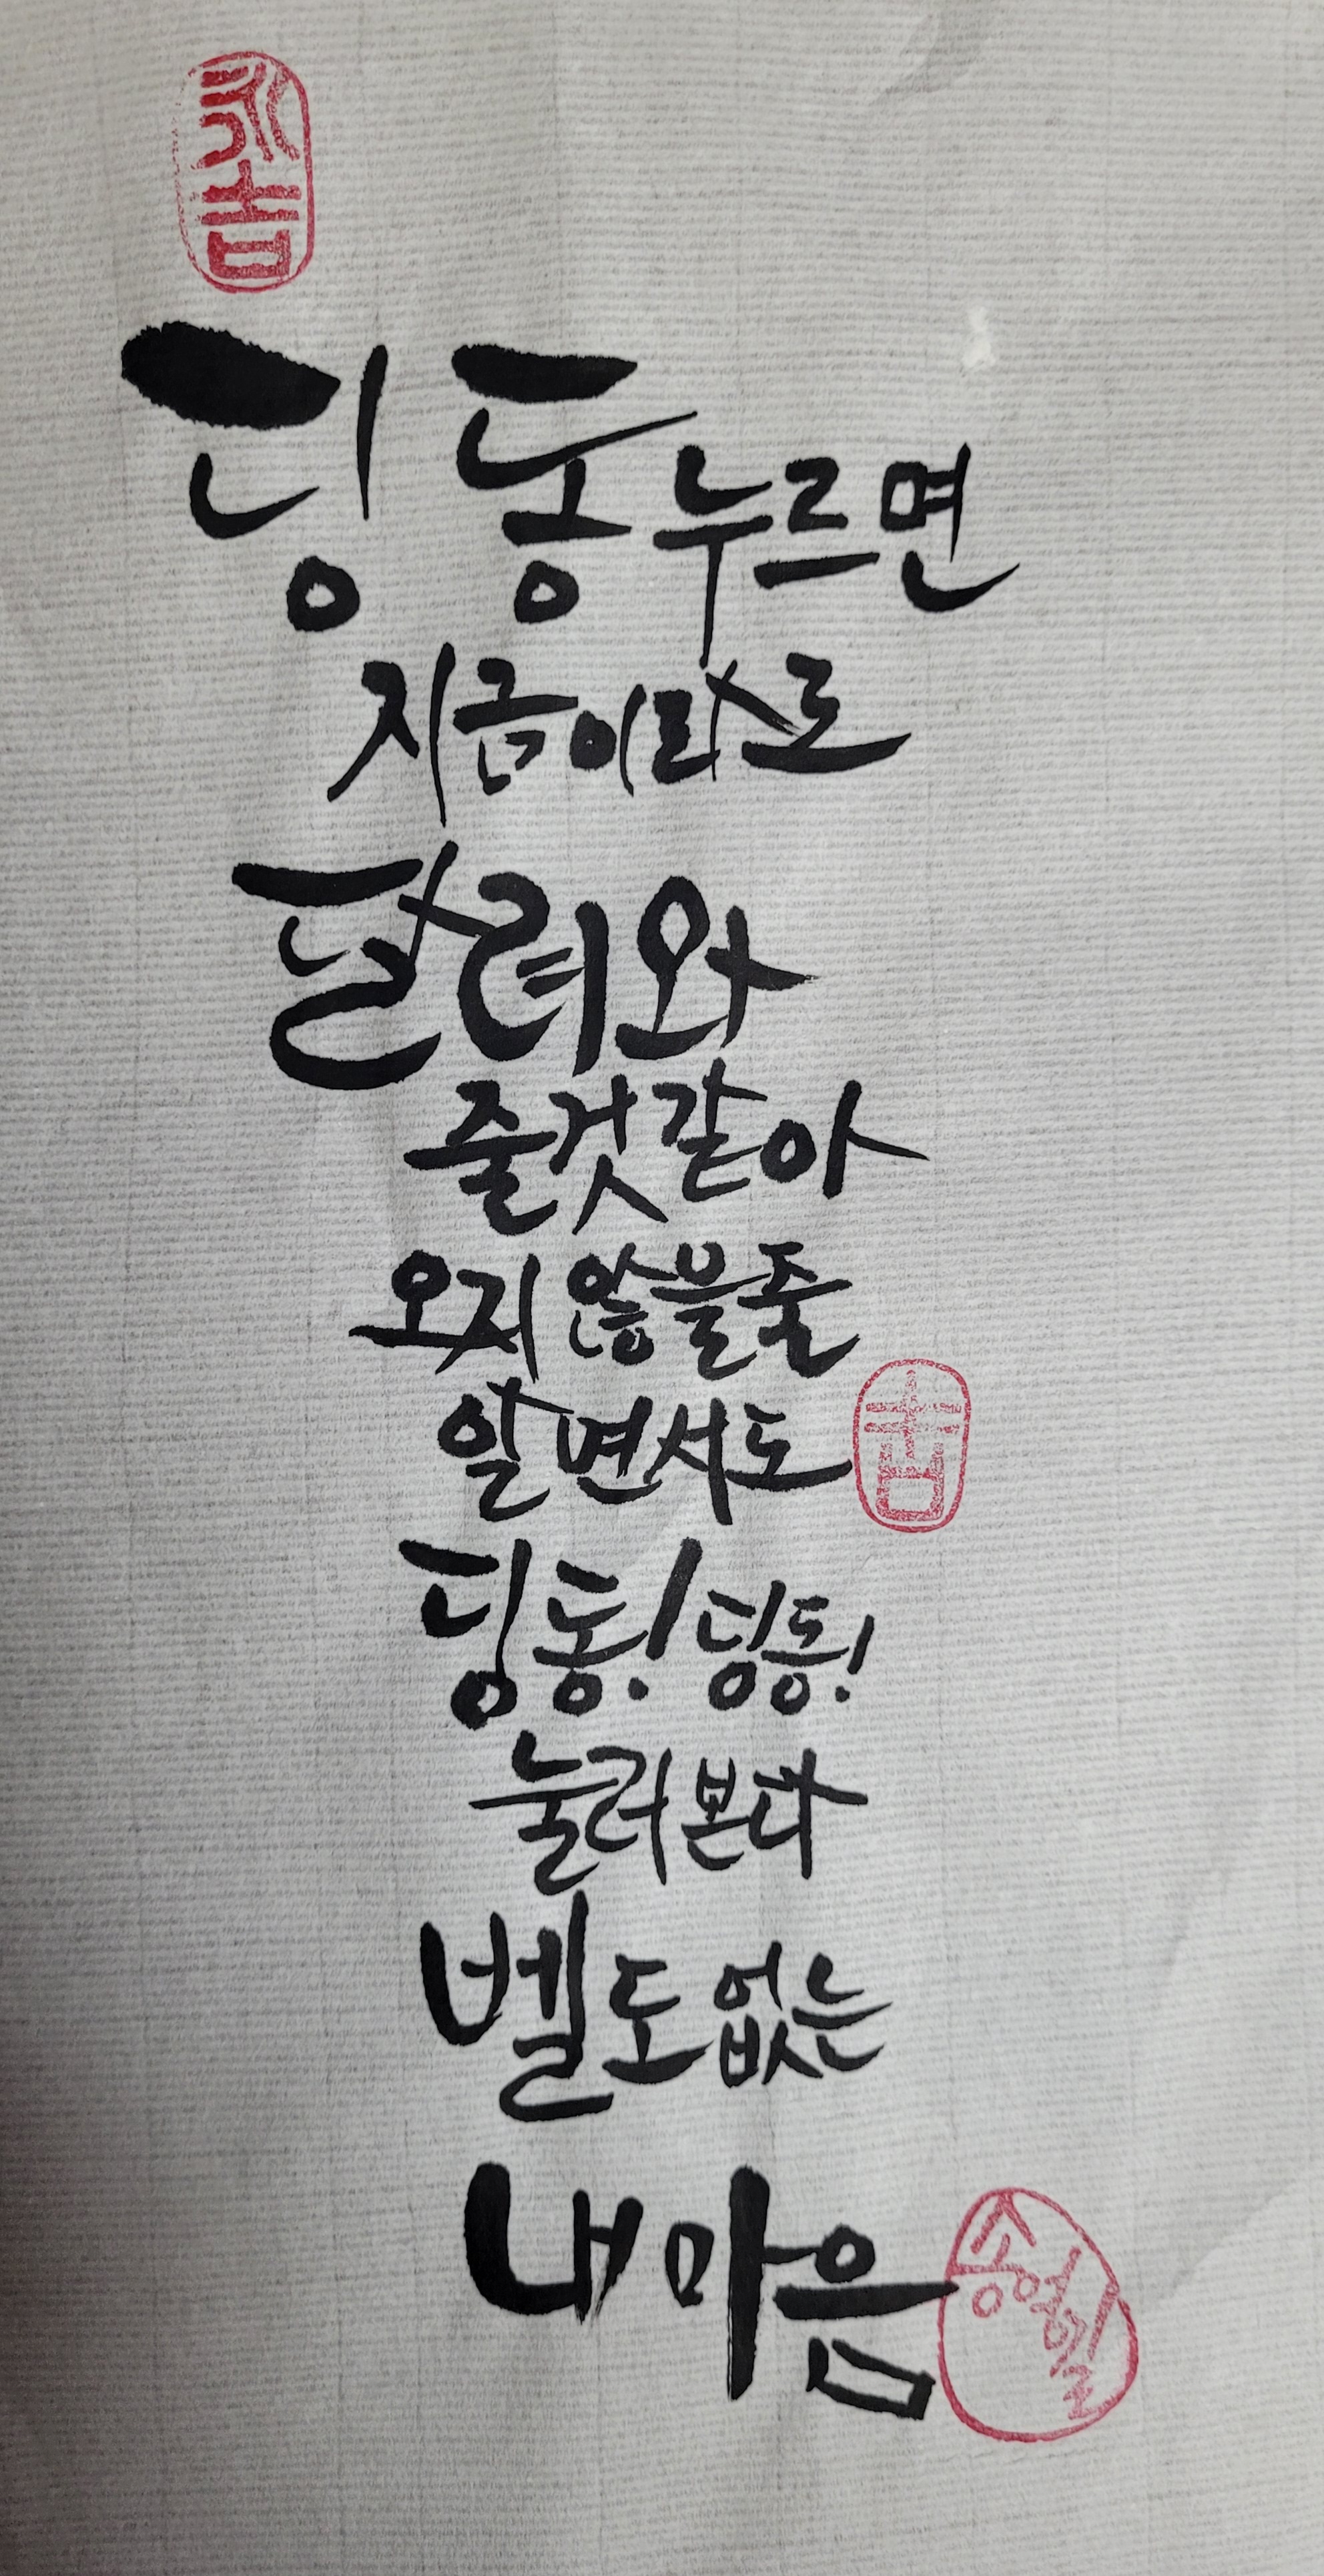 永吉
딩동누르면
지금이라도
달려와
줄것같아
오지 않을줄
알면서도
吉
딩동! 딩동!
눌러본다
벨도없는
내마음
송영길